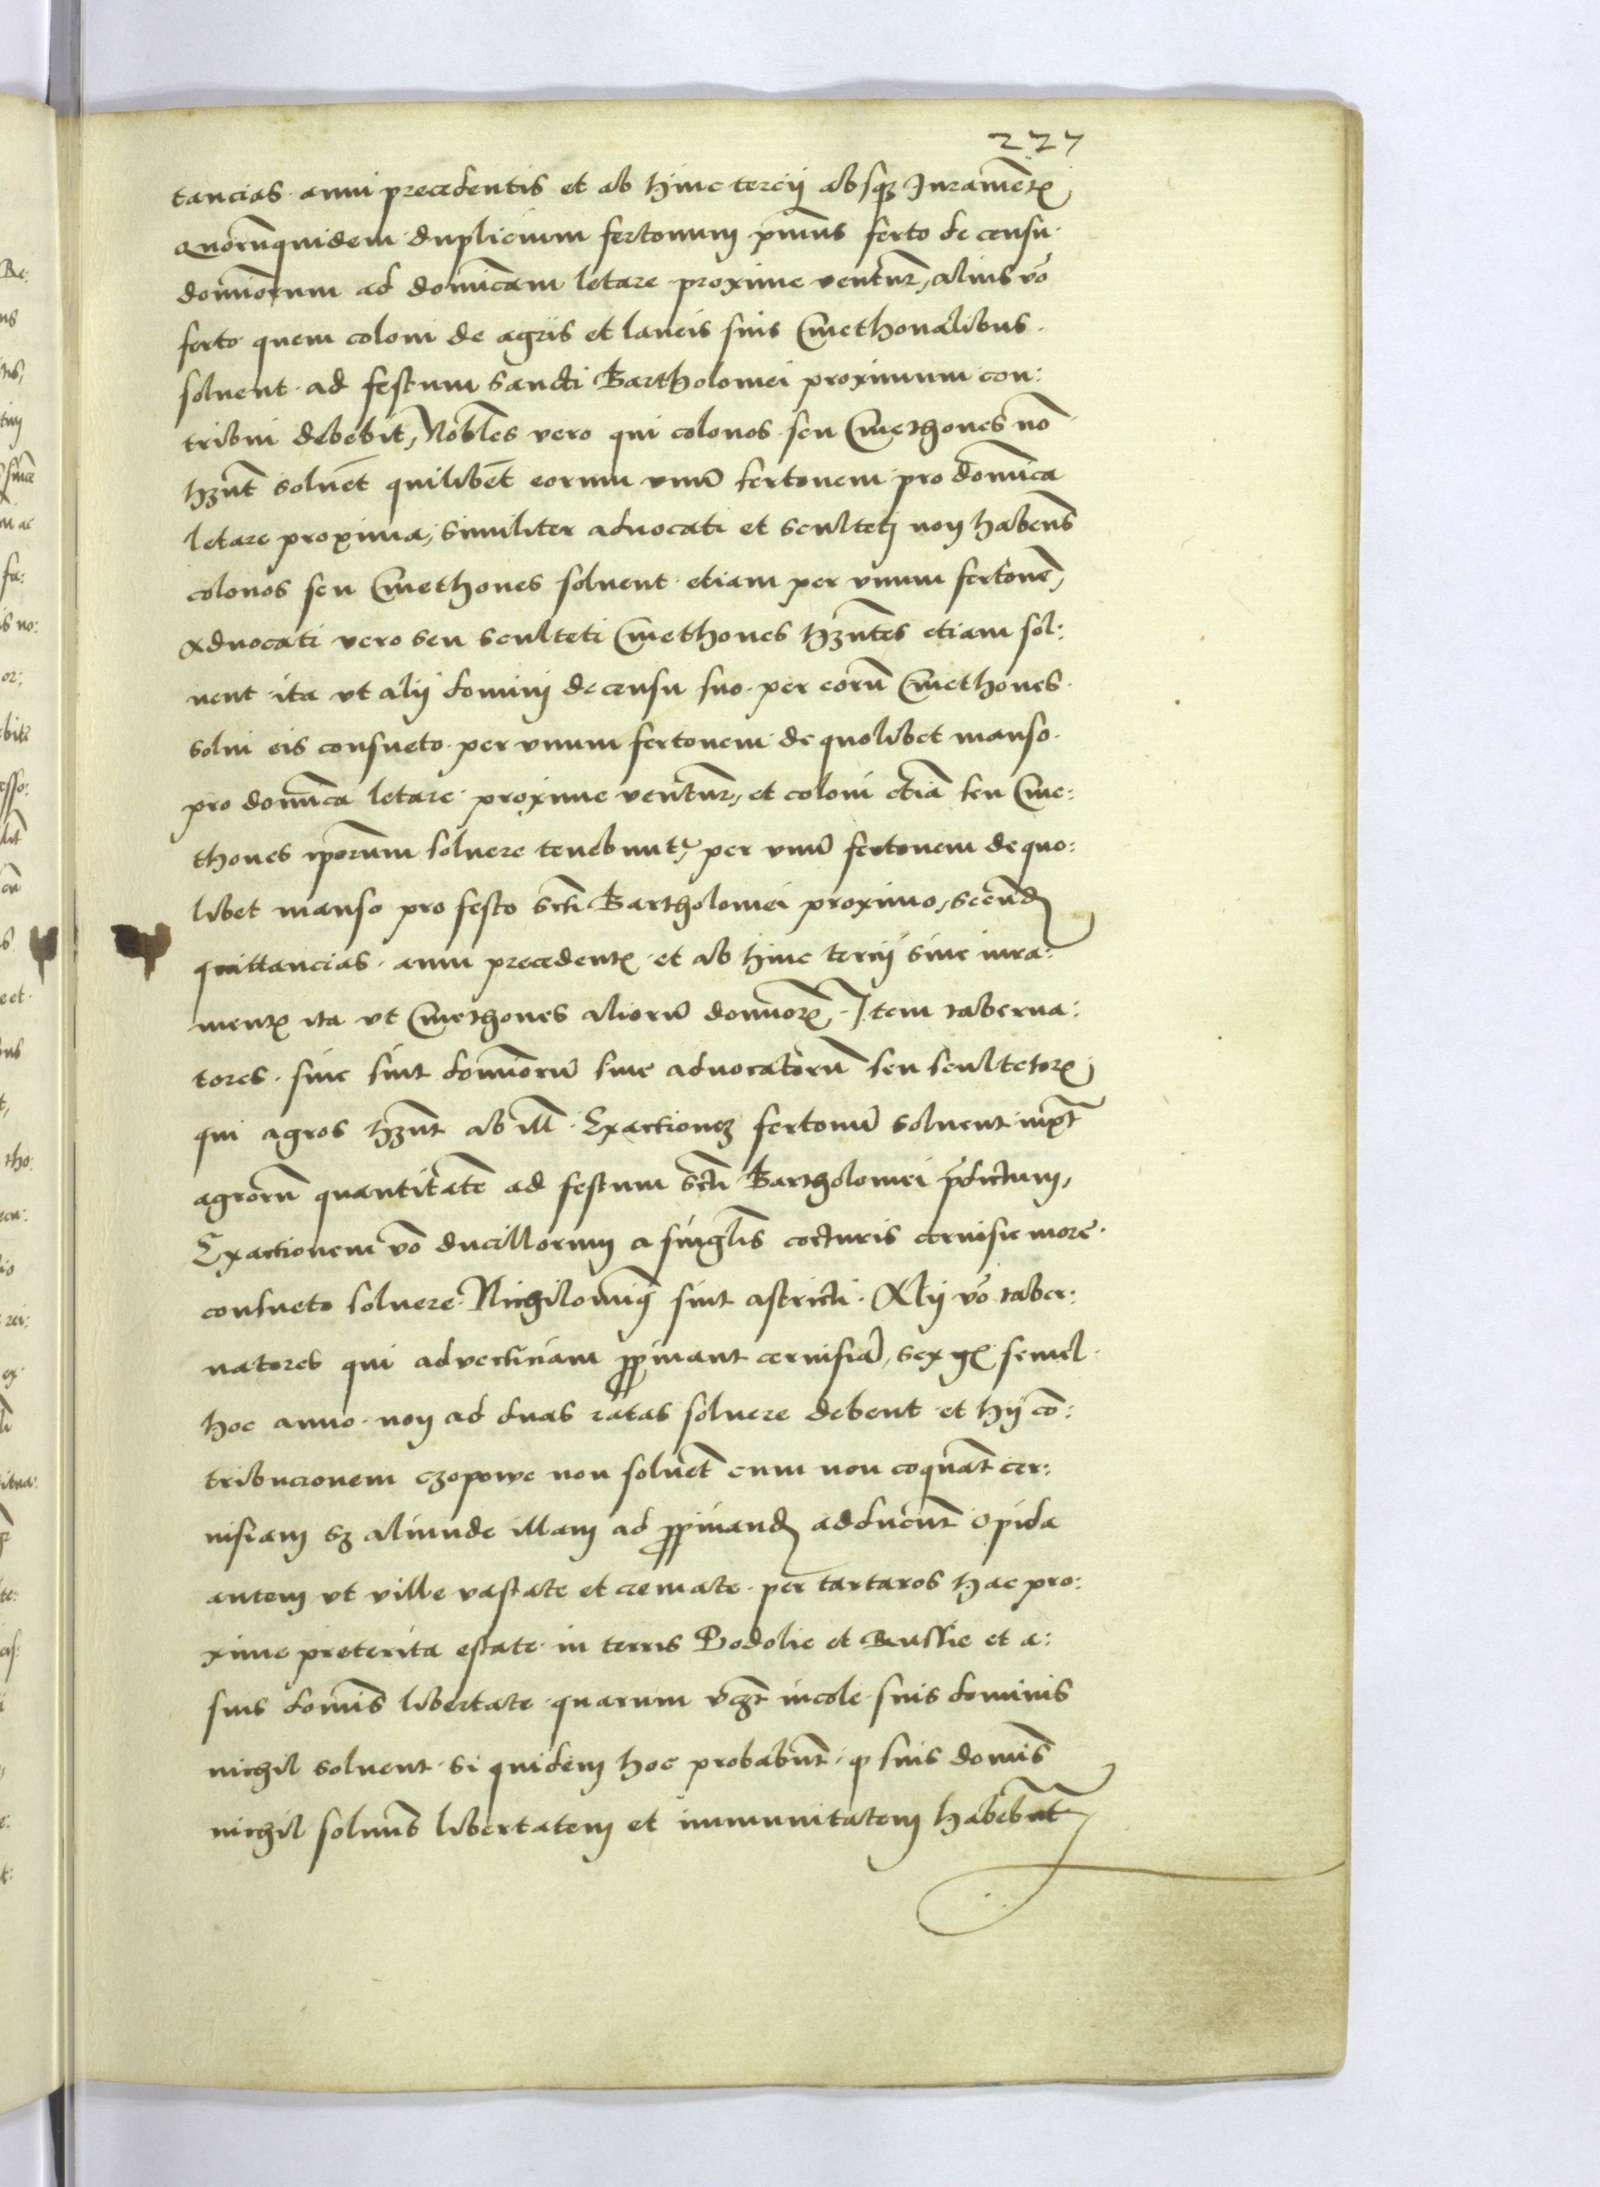 227
tancias anni precedentis et ab hinc tercij absq3 Juramẽtꝭ
quorũquidem duplicium fertonum pĩmus ferto de censu
domĩorum ad domĩcam letare proxime ventur̃, alius vo᷃
ferto quem coloni de agris et laneis suis Cmethonalibus
soluent ad festum Sancti Bartholomei proximum con:
tribui debebit, Nobĩles vero qui colonos seu Cmethones nõ
hñt soluẽt quilibet eorum vnũ fertonem pro domĩca
letare proxima, Similiter aduocati et sculteti non habenẽs
colonos seu Cmethones soluent etiam per vnum fertonẽ,
Aduocati vero seu sculteti Cmethones hñtes etiam sol:
uent ita vt alij domini de censu suo per eorũ Cmethones
solui eis consueto per vnum fertonem de quolibet manso
pro domĩca letare proxime ventur̃, et coloni etiã seu Cme:
thones ipõrum soluere tenebunt᷑ per vnũ fertonem de quo:
libet manso pro festo scti Bartholomei proximo, secund̃
quittancias anni precedentꝭ et ab hinc tercij sine iura:
mentꝭ ita vt Cmethones aliorũ domĩorꝭ, Item taberna:
tores siue sint domĩorũ siue aduocatorũ seu scultetorꝭ
qui agros hñt ab ill̃ Exactionẽ fertonũ soluent iuxt̃
agrorũ quantitatẽ ad festum scti Bartholomei p̃dictum,
Exactionem vo᷃ ducillorum a singl̃is cocturis ceruisie more
consueto soluere Nichilomiq3 sint astricti. Alij vo᷃ taber:
natores qui aduecticiam ꝓpinant ceruisiã, sex gꝭ semel
hoc anno non ad duas ratas soluere debent et hij cõ:
tribucionem czopowe non soluẽt cum non coquãt cer:
uisiam s3 aliunde illam ad ꝓpinand̃ adducũt opida
autem vt ville vastate et cremate per tartaros hac pro:
xime preterita estate in terris Podolie et Russie et a:
suis domĩs libertate quarum incole suis dominis
nichil soluent si quidem hoc probabũt q̃ suis domĩs
nichil soluũt libertatem et immunitatem habebũt